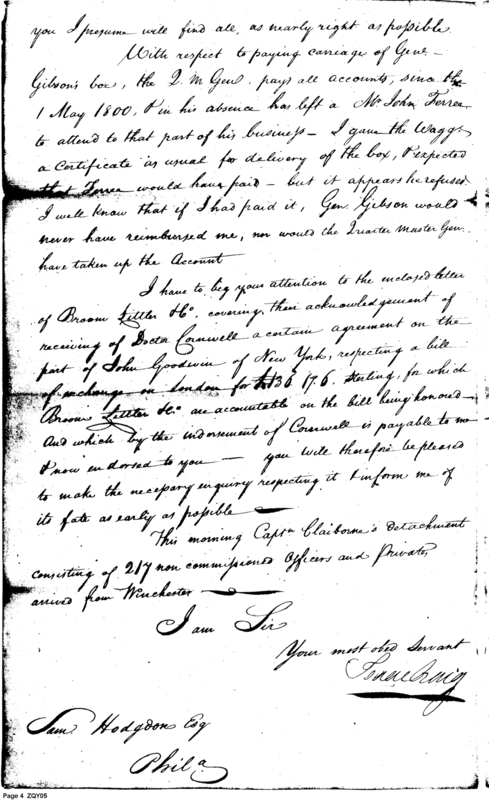 you I presume will find all, as nearly right as possible.
With respect to paying carriage of Genl
Gibson's box, the Q. M Genl. pays all accounts, since the
1 May 1800, & in his absence has left a Mr John Ferree
to attend to that part of his business – I gave the Waggr
a Certificate as usual for delivery of the box, & expected
that Ferree would have paid – but it appears he refused
I well know that if I had paid it, Gen. Gibson would
never have reimbursed me, nor would the Quarter Master Gen.
have taken up the Account
I have to beg your attention to the enclosed letter
of Broom & Co. covering their acknowledgement of
receiving of Doctor Cornwell a certain agreement on the
part of John Goodwin of New York, respecting a bill
of exchange on London for 136 17. 6. sterling, for which
Broom & Co. are accountable on the bill being honored –
And which by the indorsement of Cornwell is payable to me
& now endorsed to you — you will therefore be pleased
to make the necessary enquiry respecting it & inform me of
its fate as early as possible
This morning Captn Claiborne's Detachment
consisting of 217 non commissioned Officers and Privates
arrived from Winchester
I am Sir
Your most obed Servant
Isaac Craig
Saml Hodgdon Esq
Phila
Page 4 ZQY05